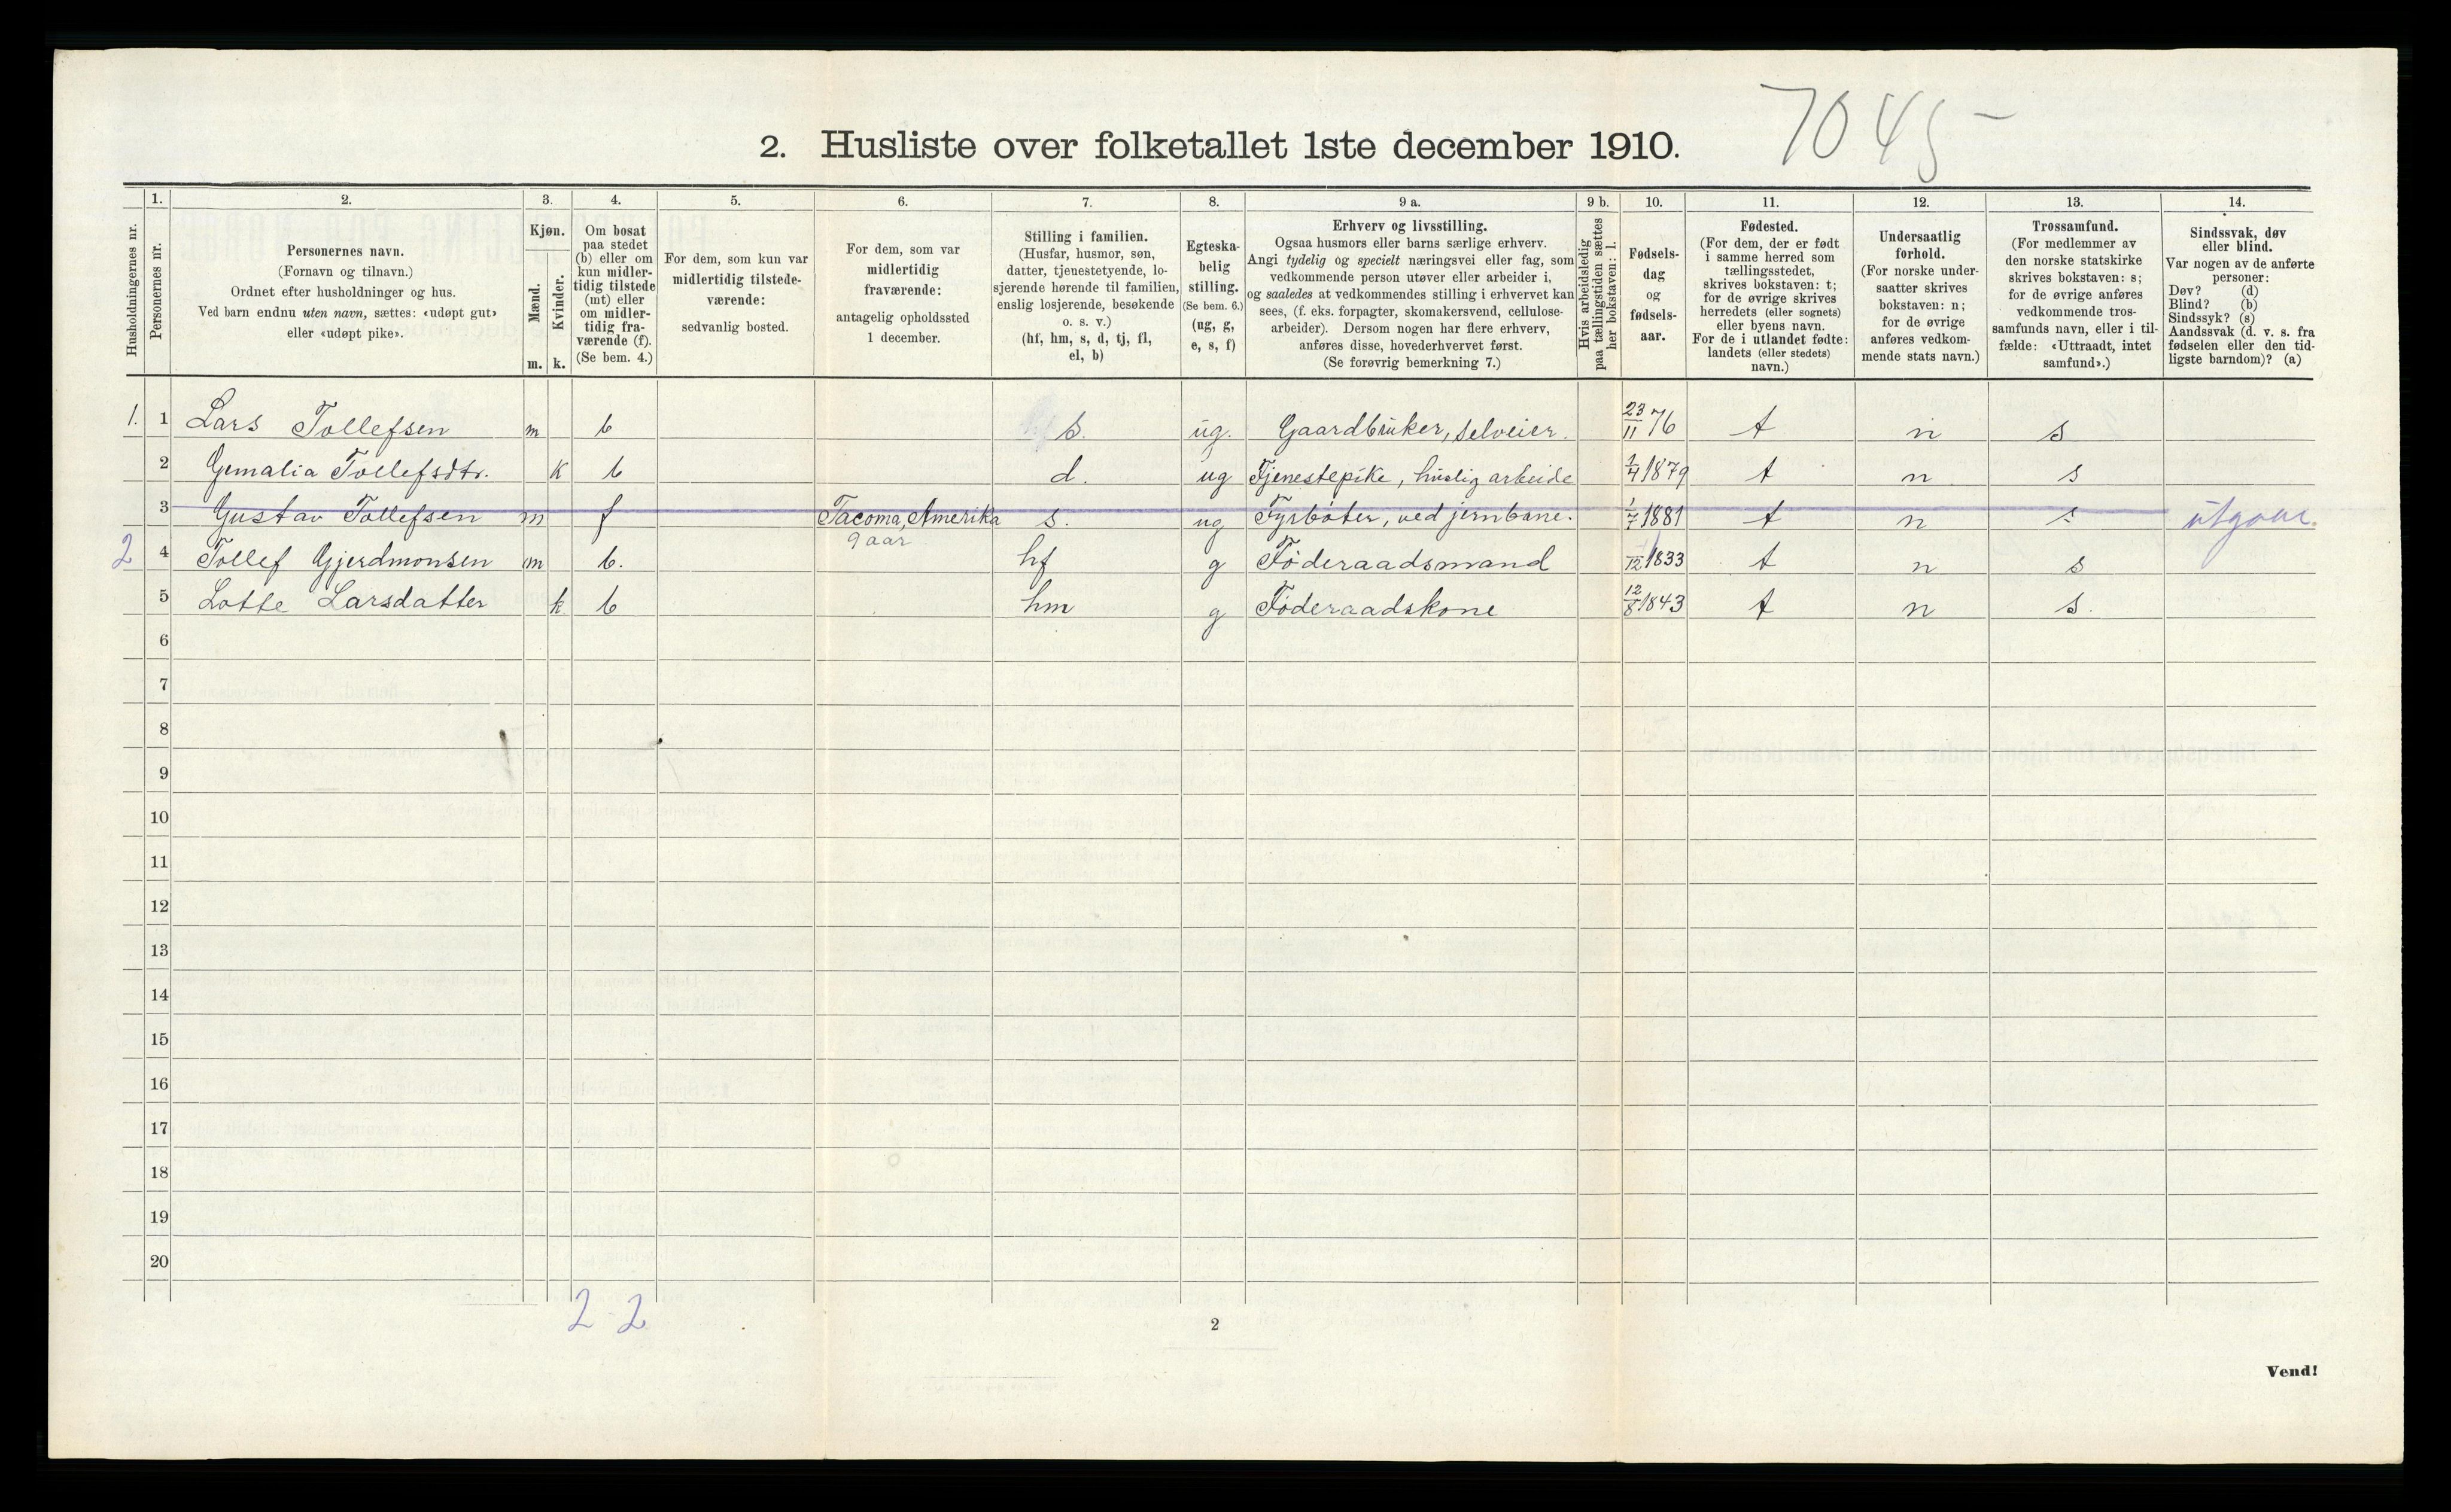 7045-
2. Husliste over folketallet 1ste december 1910.
Husholdningernes nr.
1.
Personernes nr.
2.
Personernes navn.
(Fornavn og tilnavn.)
Ordnet efter husholdninger og hus.
Ved barn endnu uten navn, sættes: «udøpt gut»
eller «udøpt pike».
3.
Kjøn.
Mænd.
m.
Kvinder.
k.
4.
Om bosat
paa stedet
(b) eller om
kun midler-
tidig tilstede
(mt) eller
om midler-
tidig fra-
værende (f).
(Se bem. 4.)
5.
For dem, som kun var
midlertidig tilstede-
værende:
sedvanlig bosted.
6.
For dem, som var
midlertidig
fraværende:
antagelig opholdssted
1 december.
7.
Stilling i familien.
(Husfar, husmor, søn,
datter, tjenestetyende, lo-
sjerende hørende til familien,
enslig losjerende, besøkende
o. s. v.)
(hf, hm, s, d, tj, fl,
el, b)
8.
Egteska-
belig
stilling.
(Se bem. 6.)
(ug, g,
e, s, f)
9 a.
Erhverv og livsstilling.
Ogsaa husmors eller barns særlige erhverv.
Angi tydelig og specielt næringsvei eller fag, som
vedkommende person utøver eller arbeider i,
og saaledes at vedkommendes stilling i erhvervet kan
sees, (f. eks. forpagter, skomakersvend, cellulose-
arbeider). Dersom nogen har flere erhverv,
anføres disse, hovederhvervet først.
(Se forøvrig bemerkning 7.)
9 b.
Hvis arbeidsledig
paa tællingstiden sættes
her bokstaven: l.
10.
Fødsels-
dag
og
fødsels-
aar.
11.
Fødested.
(For dem, der er født
i samme herred som
tællingsstedet,
skrives bokstaven: t;
for de øvrige skrives
herredets (eller sognets)
eller byens navn.
For de i utlandet fødte:
landets (eller stedets)
navn.)
12.
Undersaatlig
forhold.
(For norske under-
saatter skrives
bokstaven: n;
for de øvrige
anføres vedkom-
mende stats navn.)
13.
Trossamfund.
(For medlemmer av
den norske statskirke
skrives bokstaven: s;
for de øvrige anføres
vedkommende tros-
samfunds navn, eller i til-
fælde: «Uttraadt, intet
samfund».)
14.
Sindssvak, døv
eller blind.
Var nogen av de anførte
personer:
Døv? (d)
Blind? (b)
Sindssyk? (s)
Aandssvak (d. v. s. fra
fødselen eller den tid-
ligste barndom)? (a)
1. 1 Lars Tollefsen m b s. ug. Gaardbruker, selveier. 23/11 76 t n s
2 Gemalia Tollefsdtr. k b d. ug Tjenestepike, huslig arbeide 1/4 1879 t n s
3 Gustav Tollefsen m f Tacoma, Amerika s. ug Fyrbøter, ved jernbane. 1/7 1881 t n s utgaar.
9 aar
2 4 Tollef Gjerdmonsen m b. hf g Føderaadsmand /12 1833 t n s
5 Lotte Larsdatter k b hm g Føderaadskone 12/8 1843 t n s.
6
7
8
9
10
11
12
13
14
15
16
17
18
19
20
2-2
2
Vend!